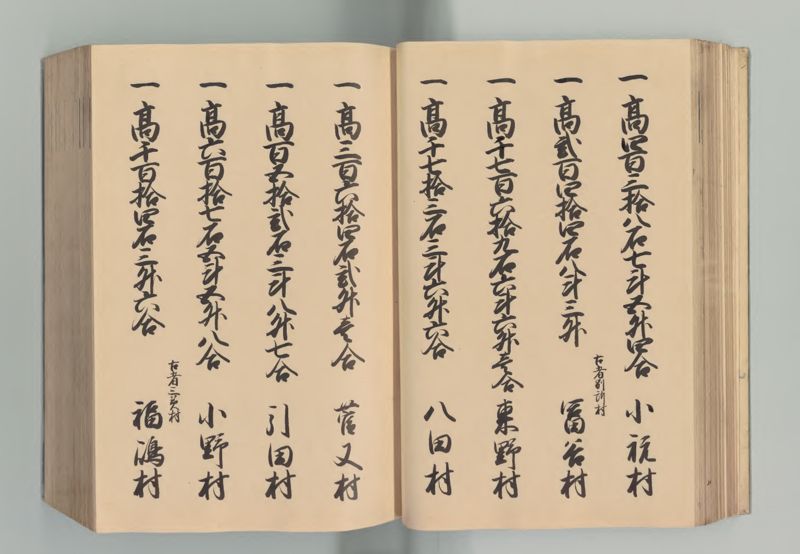 一 高四百三拾八石七斗五升四合 小祝村
一 高弐百四拾四石八斗三升 古者別所村 富谷村
一 高千七百六拾九石六斗六升壱合 東野村
一 高千七拾三石三斗六升六合 八田村
一 高三百六拾四石弐升壱合 菅又村
一 高百五拾弐石三斗八升七合 引田村
一 高六百拾七石五斗五升八合 小野村
一 高千百拾四石三升六合 古者三 村 福嶋村